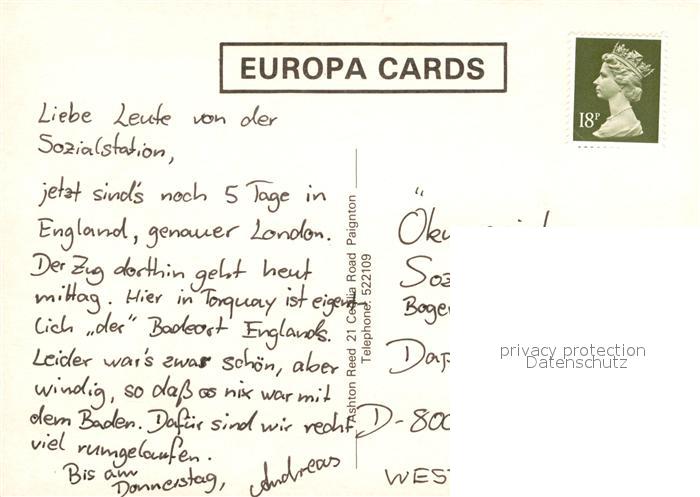 EUROPA CARDS
18P
Liebe Leute von der
Sozialstation,
jetzt sind's noch 5 Tage in
England, genauer London.
Der Zug dorthin geht heut
mittag. Hier in Torquay ist eigent-
lich „der" Badeort Englands.
Leider war's zwar schön, aber
windig, so daß es nix war mit
dem Baden. Dafür sind wir recht
viel rumgelaufen.
Bis am
Donnerstag, Andreas
Ashton Reed 21 Cecilia Road Paignton
Telephone: 522109
Öku
Soz
Boge
Dap
D-800
WEST
privacy protection
Datenschutz